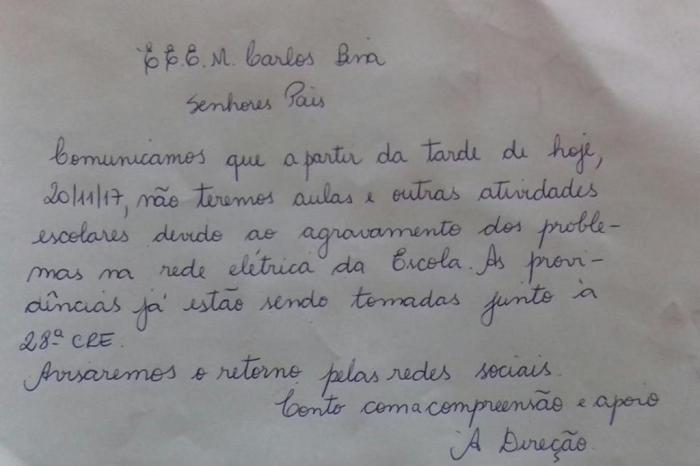 E.E.E.M. Carlos Bina
Senhores Pais
Comunicamos que a partir da tarde de hoje,
20/11/17, não teremos aulas e outras atividades
escolares devido ao agravamento dos proble-
mas na rede elétrica da Escola. As provi-
dências já estão sendo tomadas junto à
28ª CRE.
Avisaremos o retorno pelas redes sociais.
Conto com a compreensão e apoio
A Direção.